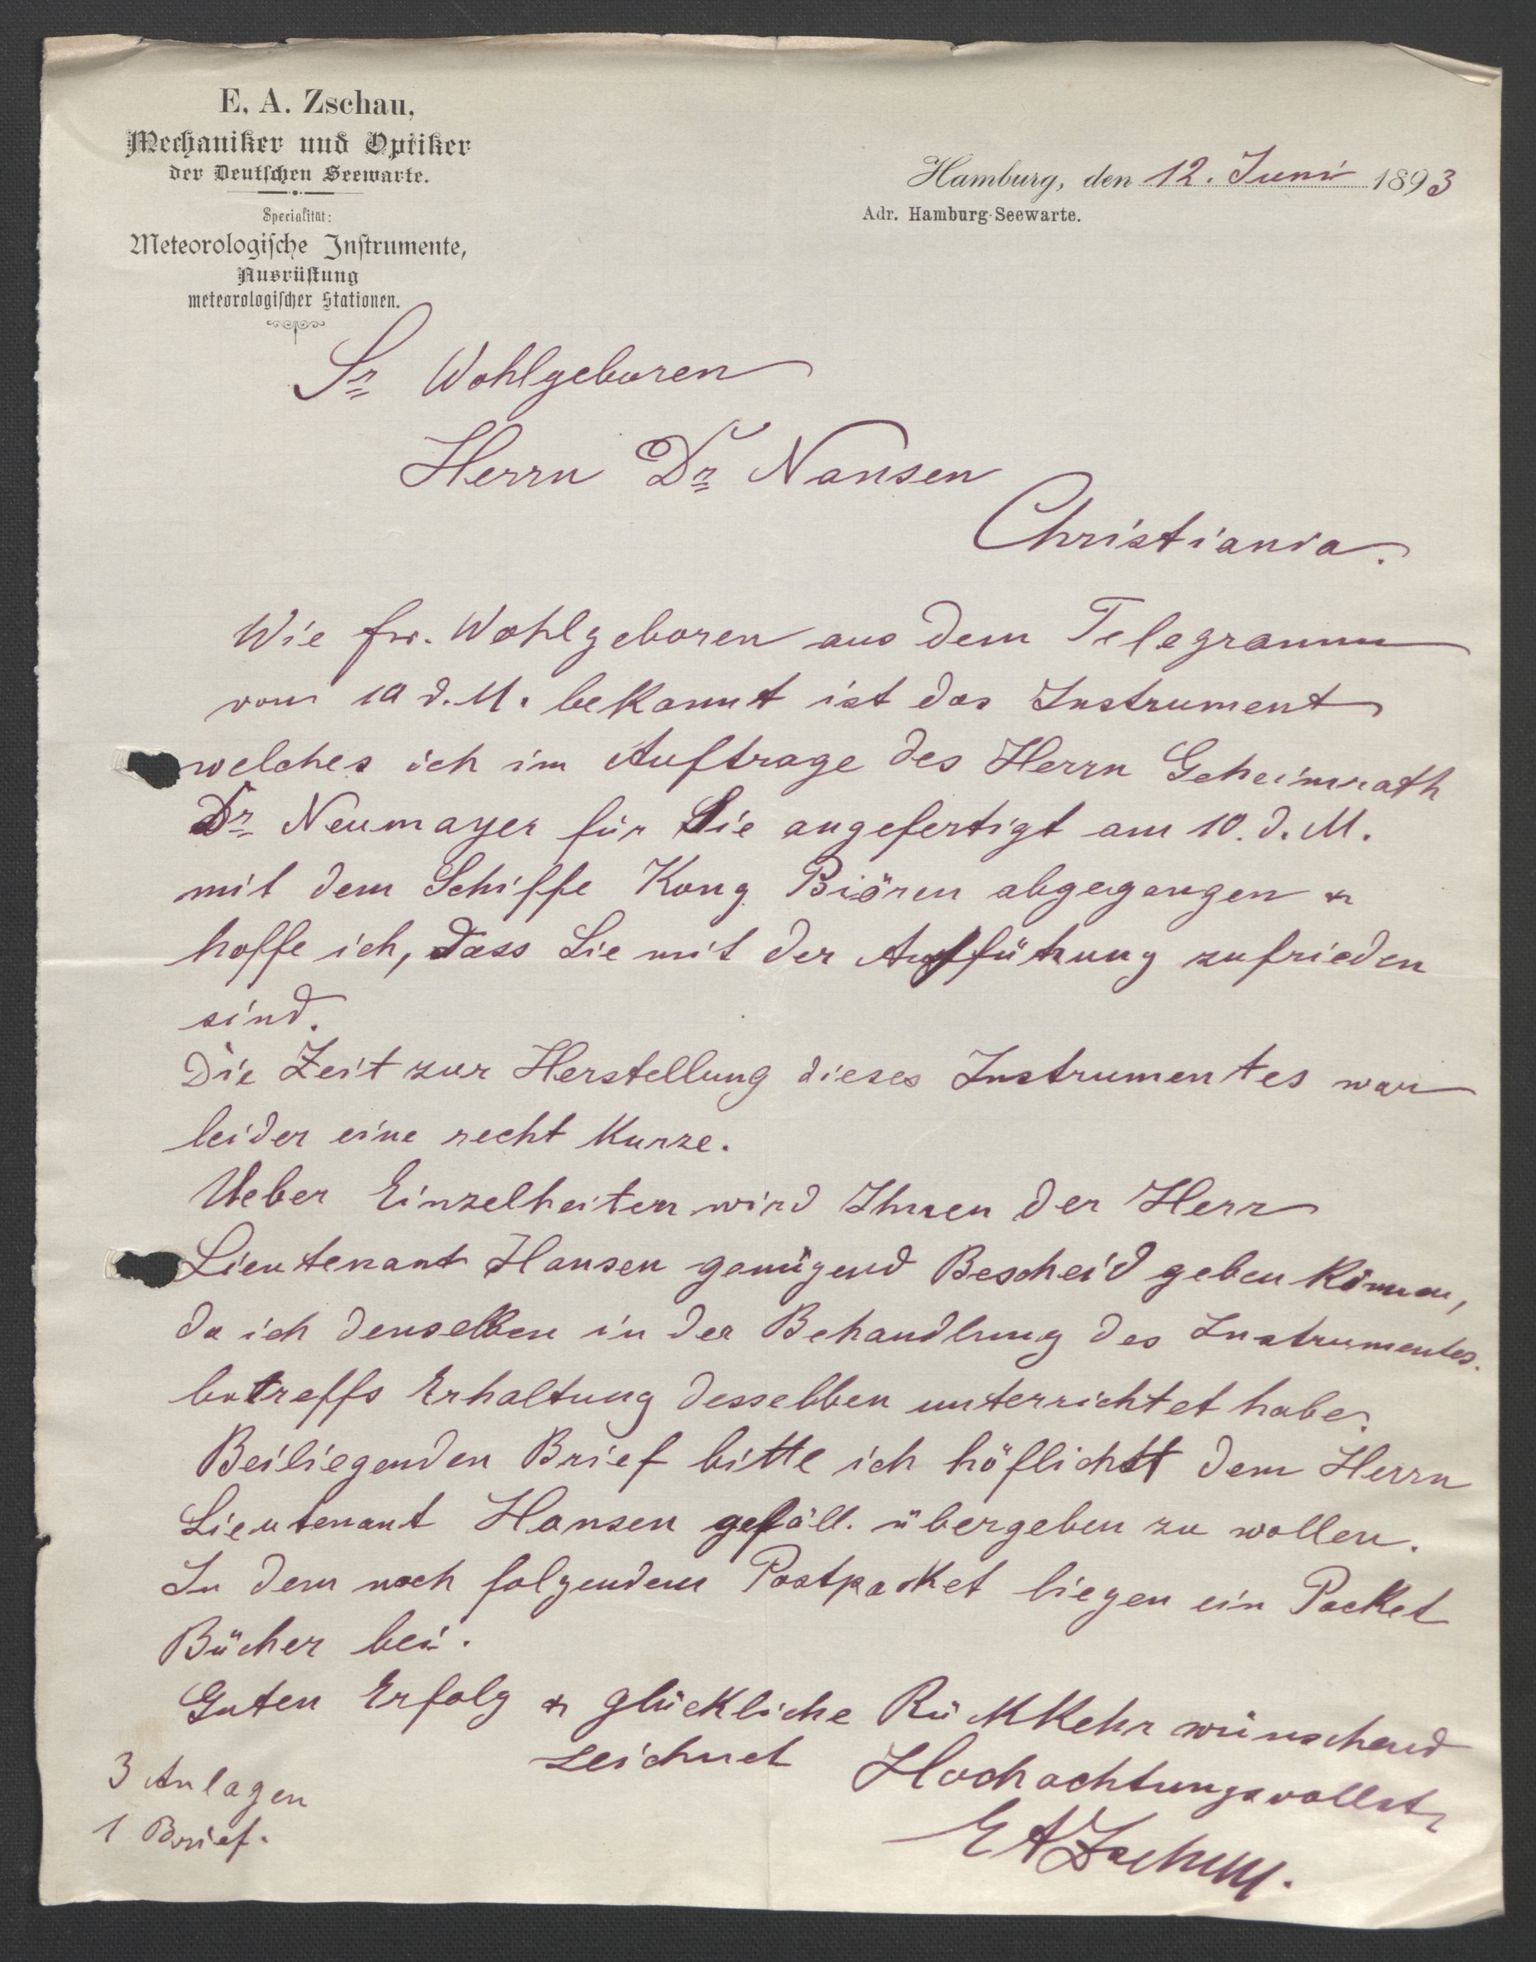 E. A. Zschau,
Mechaniker und Optiker
der Deutschen Seewarte.
Specialität:
Meteorologische Instrumente,
Ausrüstung
meteorologischer Stationen.
Hamburg, den 12. Juni 1893
Adr. Hamburg-Seewarte.
Sr Wohlgeboren
Herrn Dr Nansen
Christiania.
Wie Ew. Wohlgeboren aus dem Telegramm
vom 10 d. M. bekannt ist das Instrument
welches ich im Auftrage des Herrn Geheimrath
Dr Neumayer für Sie angefertigt am 10. d. M.
mit dem Schiffe Kong Biören abgegangen &
hoffe ich, dass Sie mit der Ausführung zufrieden
sind.
Die Zeit zur Herstellung dieses Instrumentes war
leider eine recht kurze.
Ueber Einzelheiten wird Ihnen der Herr
Lieutenant Hansen genügend Bescheid geben können,
da ich denselben in der Behandlung des Instrumentes.
betreffs Erhaltung desselben unterrichtet habe.
Beiliegenden Brief bitte ich höflichst dem Herrn
Lieutenant Hansen gefäll. übergeben zu wollen.
In dem noch folgendem Postpacket liegen ein Packet
Bücher bei.
Guten Erfolg & glückliche Rückkehr wünschend
zeichnet Hochachtungsvollst
E A Zschau.
3 Anlagen
1 Brief.